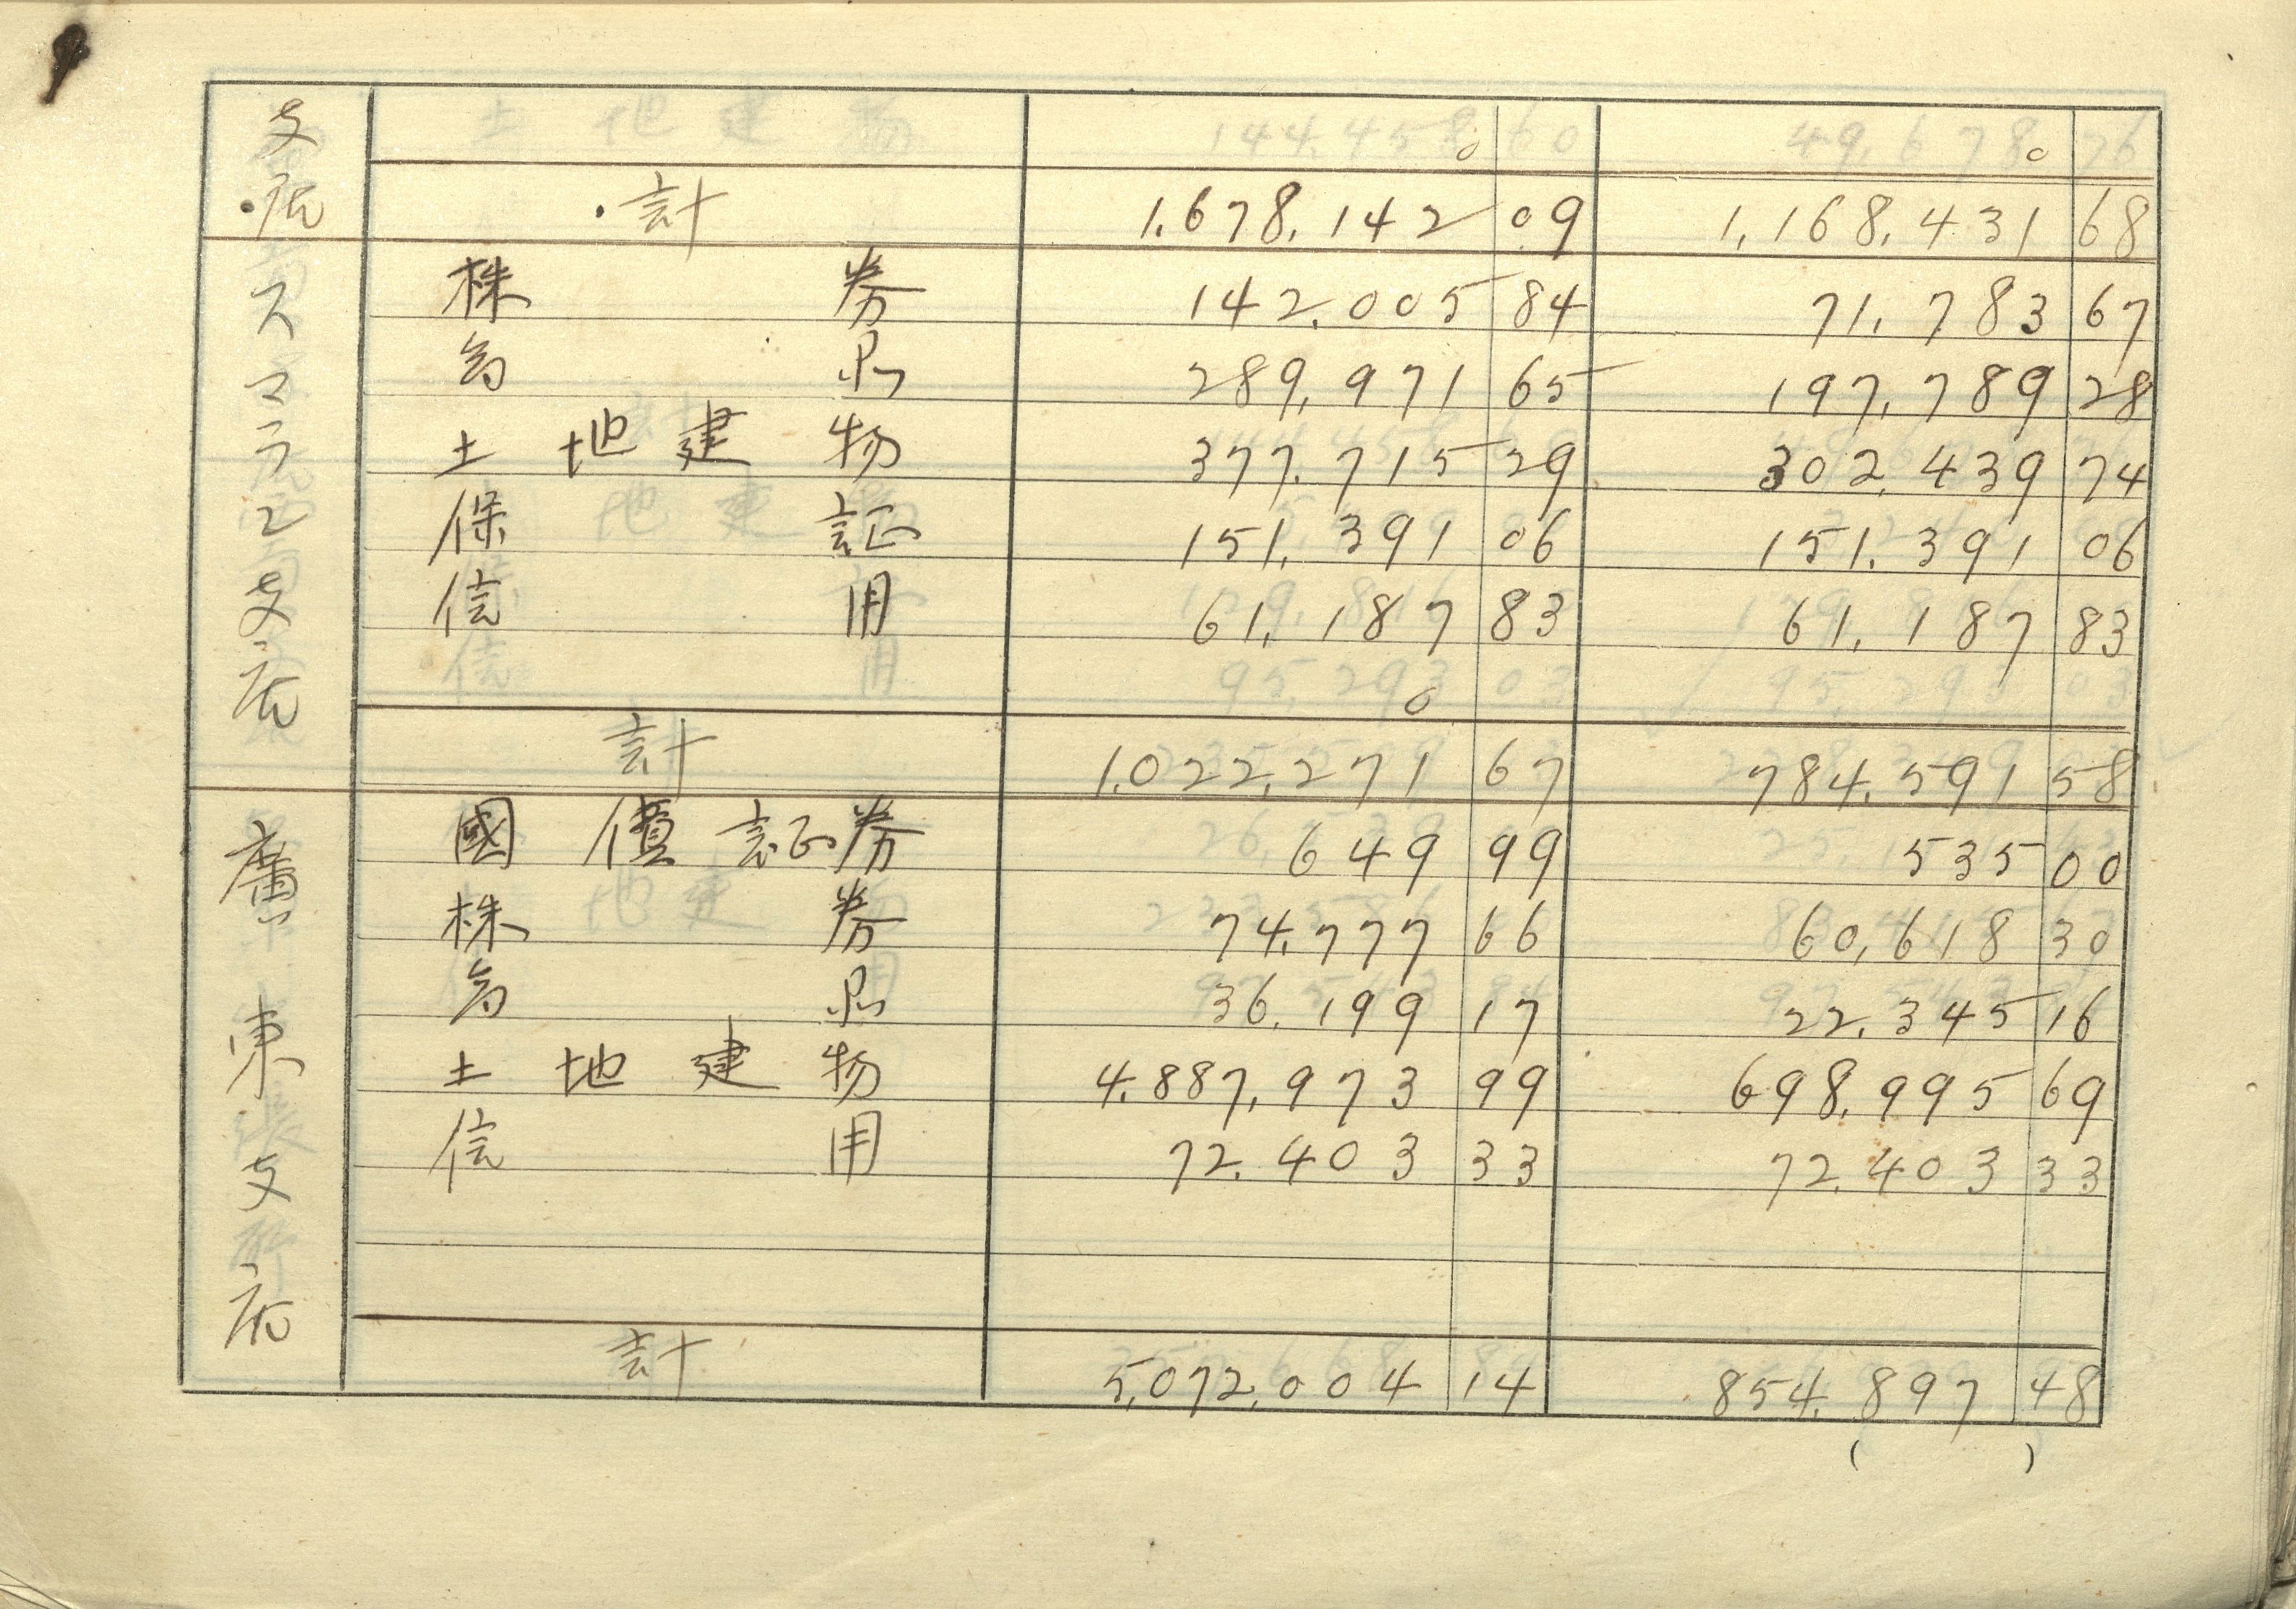 支店
0 0
計 1,678,142 09 1,168,431 68
スマラン支店
株券 142,005 84 71,783 67
商品 289,971 65 197,789 28
土地建物 377,715 29 302,439 74
保証 151,391 06 151,391 06
信用 61,187 83 61,187 83
0
計 1,022,271 67 784,591 58
廣東支店
國債証券 649 99 535 00
株券 74,777 66 60,618 30
商品 36,199 17 22,345 16
土地建物 4,887,973 99 698,995 69
信用 72,403 33 72,403 33
計 5,072,004 14 854,897 48
( )